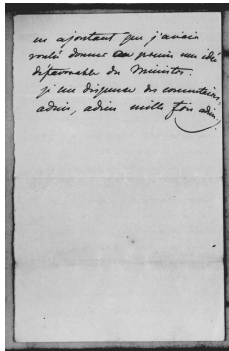 en ajoutant que j'avais
voulu donner au premier une idée
défavorable du Ministre.
je me dispense des commentaires,
adieu, adieu mille fois adieu!